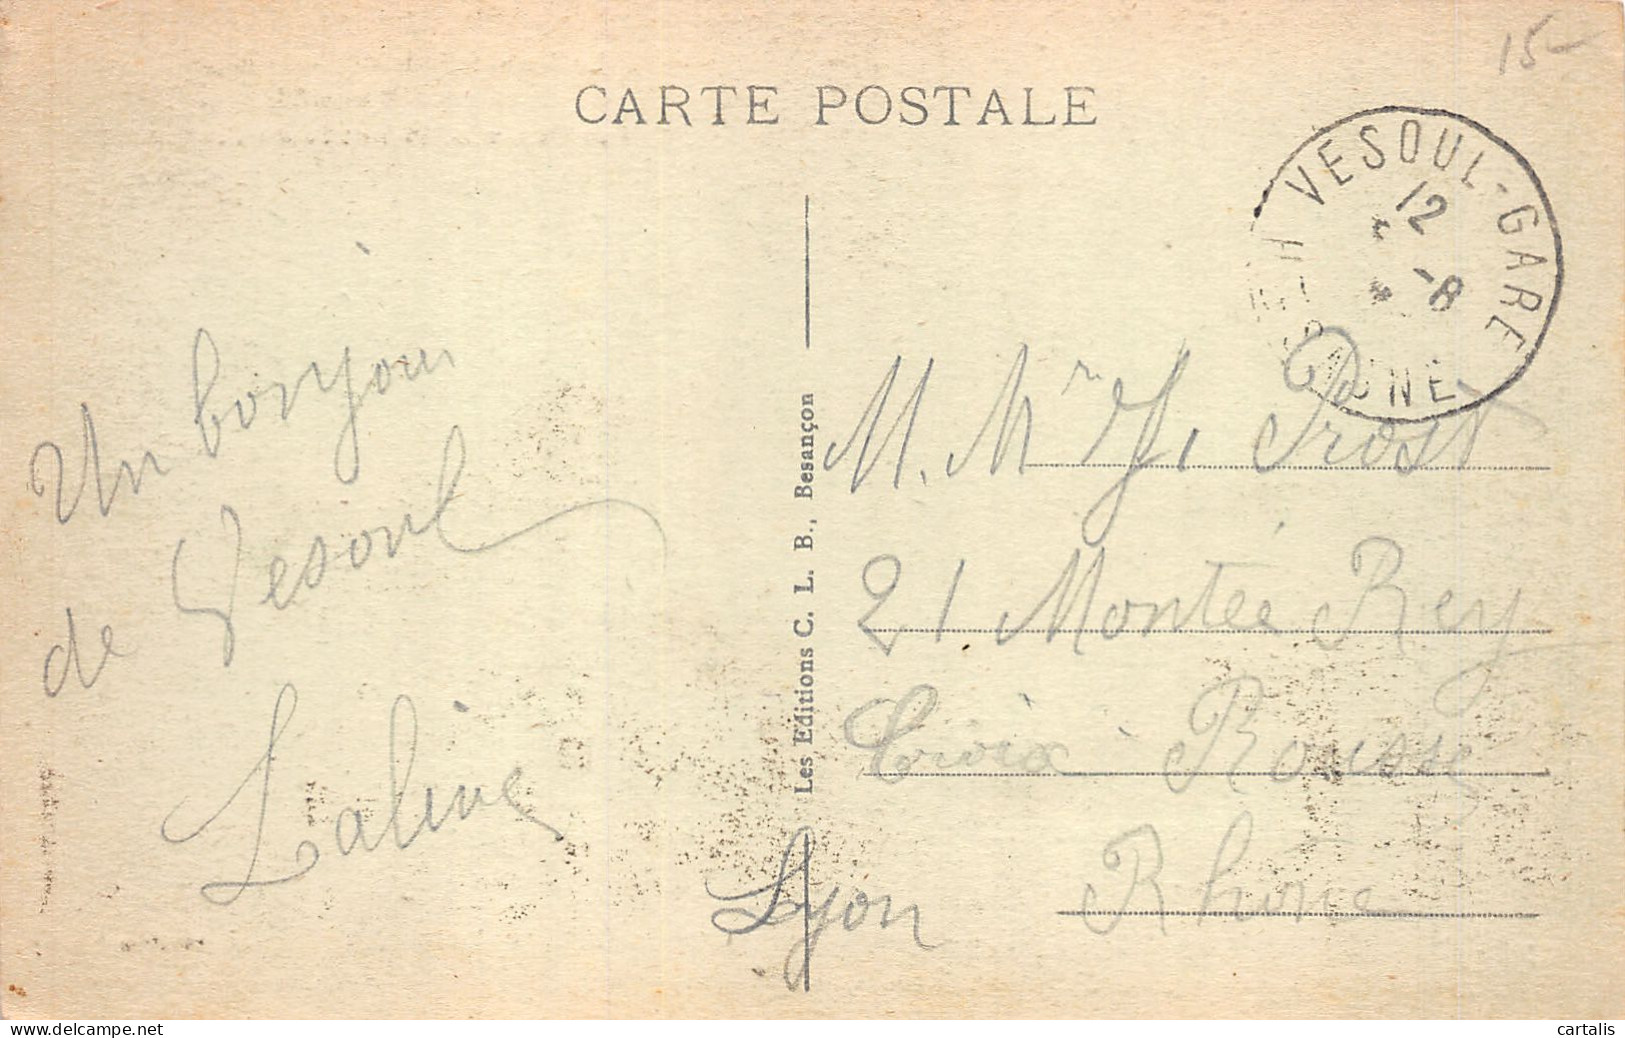 15
CARTE POSTALE
VESOUL-GARE
12
-8
Un bonjour
de Vesoul
Laline
Les Editions C. L. B., Besançon
M. Mr J. Prost
21 Montée Rey
Croix-Rousse
Lyon Rhône
www.delcampe.net
cartalis